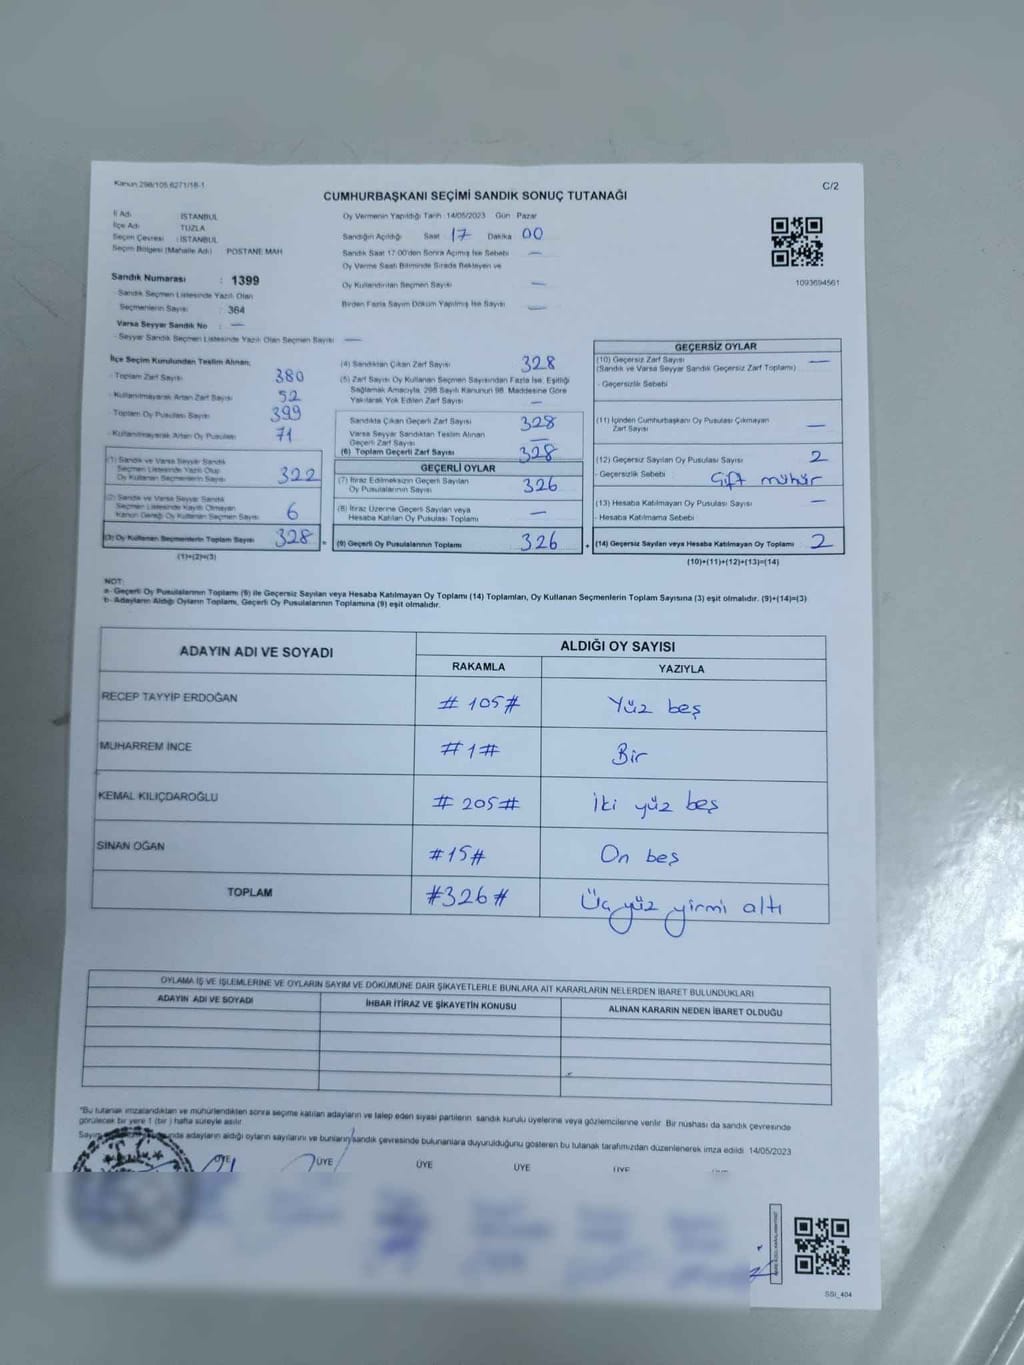 Kanun 298/105 6271/18-1
C/2
CUMHURBAŞKANI SEÇİMİ SANDIK SONUÇ TUTANAĞI
İl Adı : İSTANBUL
İlçe Adı : TUZLA
Seçim Çevresi : İSTANBUL
Seçim Bölgesi (Mahalle Adı) POSTANE MAH
Sandık Numarası : 1399
Sandık Seçmen Listesinde Yazılı Olan
Seçmenlerin Sayısı : 364
Varsa Seyyar Sandık No : —
- Seyyar Sandık Seçmen Listesinde Yazılı Olan Seçmen Sayısı —
Oy Vermenin Yapıldığı Tarih 14/05/2023 Gün Pazar
Sandığın Açıldığı Saat 17 Dakika 00
Sandık Saat 17:00'den Sonra Açılmış İse Sebebi —
Oy Verme Saati Bitiminde Sırada Bekleyen ve
Oy Kullandırılan Seçmen Sayısı —
Birden Fazla Sayım Döküm Yapılmış İse Sayısı —
1093694561
İlçe Seçim Kurulundan Teslim Alınan;
- Toplam Zarf Sayısı 380
- Kullanılmayarak Artan Zarf Sayısı 52
- Toplam Oy Pusulası Sayısı 399
- Kullanılmayarak Artan Oy Pusulası 71
(1) Sandık ve Varsa Seyyar Sandık
Seçmen Listesinde Yazılı Olup
Oy Kullanan Seçmenlerin Sayısı 322
(2) Sandık ve Varsa Seyyar Sandık
Seçmen Listesinde Kayıtlı Olmayan
Kanun Gereği Oy Kullanan Seçmen Sayısı 6
(3) Oy Kullanan Seçmenlerin Toplam Sayısı 328 =
(1)+(2)=(3)
(4) Sandıktan Çıkan Zarf Sayısı 328
(5) Zarf Sayısı Oy Kullanan Seçmen Sayısından Fazla İse, Eşitliği
Sağlamak Amacıyla, 298 Sayılı Kanunun 98. Maddesine Göre
Yakılarak Yok Edilen Zarf Sayısı —
Sandıkta Çıkan Geçerli Zarf Sayısı 328
Varsa Seyyar Sandıktan Teslim Alınan
Geçerli Zarf Sayısı —
(6) Toplam Geçerli Zarf Sayısı 328
GEÇERLİ OYLAR
(7) İtiraz Edilmeksizin Geçerli Sayılan
Oy Pusulalarının Sayısı 326
(8) İtiraz Üzerine Geçerli Sayılan veya
Hesaba Katılan Oy Pusulası Toplamı —
(9) Geçerli Oy Pusulalarının Toplamı 326 +
GEÇERSİZ OYLAR
(10) Geçersiz Zarf Sayısı —
(Sandık ve Varsa Seyyar Sandık Geçersiz Zarf Toplamı)
- Geçersizlik Sebebi
(11) İçinden Cumhurbaşkanı Oy Pusulası Çıkmayan
Zarf Sayısı —
(12) Geçersiz Sayılan Oy Pusulası Sayısı 2
- Geçersizlik Sebebi Çift mühür
(13) Hesaba Katılmayan Oy Pusulası Sayısı —
- Hesaba Katılmama Sebebi
(14) Geçersiz Sayılan veya Hesaba Katılmayan Oy Toplamı 2
(10)+(11)+(12)+(13)=(14)
NOT:
a- Geçerli Oy Pusulalarının Toplamı (9) ile Geçersiz Sayılan veya Hesaba Katılmayan Oy Toplamı (14) Toplamları, Oy Kullanan Seçmenlerin Toplam Sayısına (3) eşit olmalıdır. (9)+(14)=(3)
b- Adayların Aldığı Oyların Toplamı, Geçerli Oy Pusulalarının Toplamına (9) eşit olmalıdır.
ADAYIN ADI VE SOYADI
ALDIĞI OY SAYISI
RAKAMLA YAZIYLA
RECEP TAYYİP ERDOĞAN # 105 # Yüz beş
MUHARREM İNCE # 1 # Bir
KEMAL KILIÇDAROĞLU # 205 # İki yüz beş
SİNAN OĞAN # 15 # On beş
TOPLAM # 326 # Üç yüz yirmi altı
OYLAMA İŞ VE İŞLEMLERİNE VE OYLARIN SAYIM VE DÖKÜMÜNE DAİR ŞİKAYETLERLE BUNLARA AİT KARARLARIN NELERDEN İBARET BULUNDUKLARI
ADAYIN ADI VE SOYADI İHBAR İTİRAZ VE ŞİKAYETİN KONUSU ALINAN KARARIN NEDEN İBARET OLDUĞU
"Bu tutanak imzalandıktan ve mühürlendikten sonra seçime katılan adayların ve talep eden siyasi partilerin sandık kurulu üyelerine veya gözlemcilerine verilir. Bir nüshası da sandık çevresinde
görülecek bir yere 1 (bir) hafta süreyle asılır.
adayların aldığı oyların sayılarını ve bunların sandık çevresinde bulunanlara duyurulduğunu gösteren bu tutanak tarafımızdan düzenlenerek imza edildi. 14/05/2023
ÜYE ÜYE ÜYE ÜYE ÜYE
SSI_404